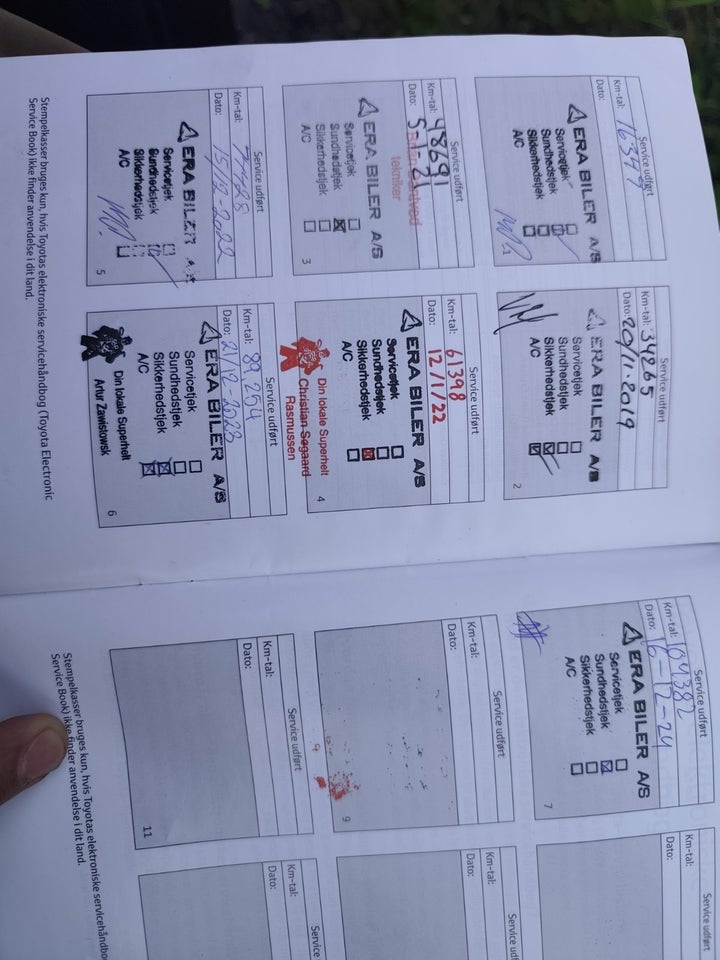 Service udført
Km-tal: 16349
Dato:
ERA BILER A/S
Servicetjek
Sundhedstjek
Sikkerhedstjek
A/C
1
Service udført
Km-tal: 34265
Dato: 20/11-2019
ERA BILER A/S
Servicetjek
Sundhedstjek
Sikkerhedstjek
A/C
2
Service udført
Km-tal: 48691
Dato: 5
tekniker
ERA BILER A/S
Servicetjek
Sundhedstjek
Sikkerhedstjek
A/C
3
Service udført
Km-tal: 61398
Dato: 12/1/22
ERA BILER A/S
Servicetjek
Sundhedstjek
Sikkerhedstjek
A/C
Din lokale Superhelt
Christian Søgaard
Rasmussen
4
Service udført
Km-tal:
Dato: 15/12-2022
ERA BILER A/S
Servicetjek
Sundhedstjek
Sikkerhedstjek
A/C
5
Service udført
Km-tal: 89,254
Dato: 21/12-2023
ERA BILER A/S
Servicetjek
Sundhedstjek
Sikkerhedstjek
A/C
Din lokale Superhelt
Artur Zawistowsk
6
Stempelkasser bruges kun, hvis Toyotas elektroniske servicehåndbog (Toyota Electronic
Service Book) ikke finder anvendelse i dit land.
Service udført
Km-tal: 104382
Dato: 16-12-24
ERA BILER A/S
Servicetjek
Sundhedstjek
Sikkerhedstjek
A/C
7
Service udført
Km-tal:
Dato:
Service udført
Km-tal:
Dato:
9
Service udført
Km-tal:
Dato:
Service udført
Km-tal:
Dato:
11
Service
Km-tal:
Dato:
Stempelkasser bruges kun, hvis Toyotas elektroniske servicehåndbo
Service Book) ikke finder anvendelse i dit land.